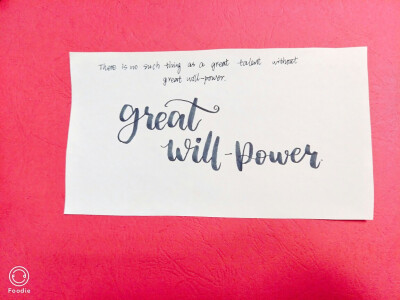 There is no such thing as a great talent without
great will-power.
great
will-power
Foodie